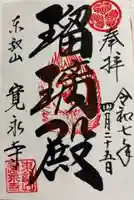 奉拝
令和七年
四月二十五日
瑠璃殿
東叡山
寛永寺